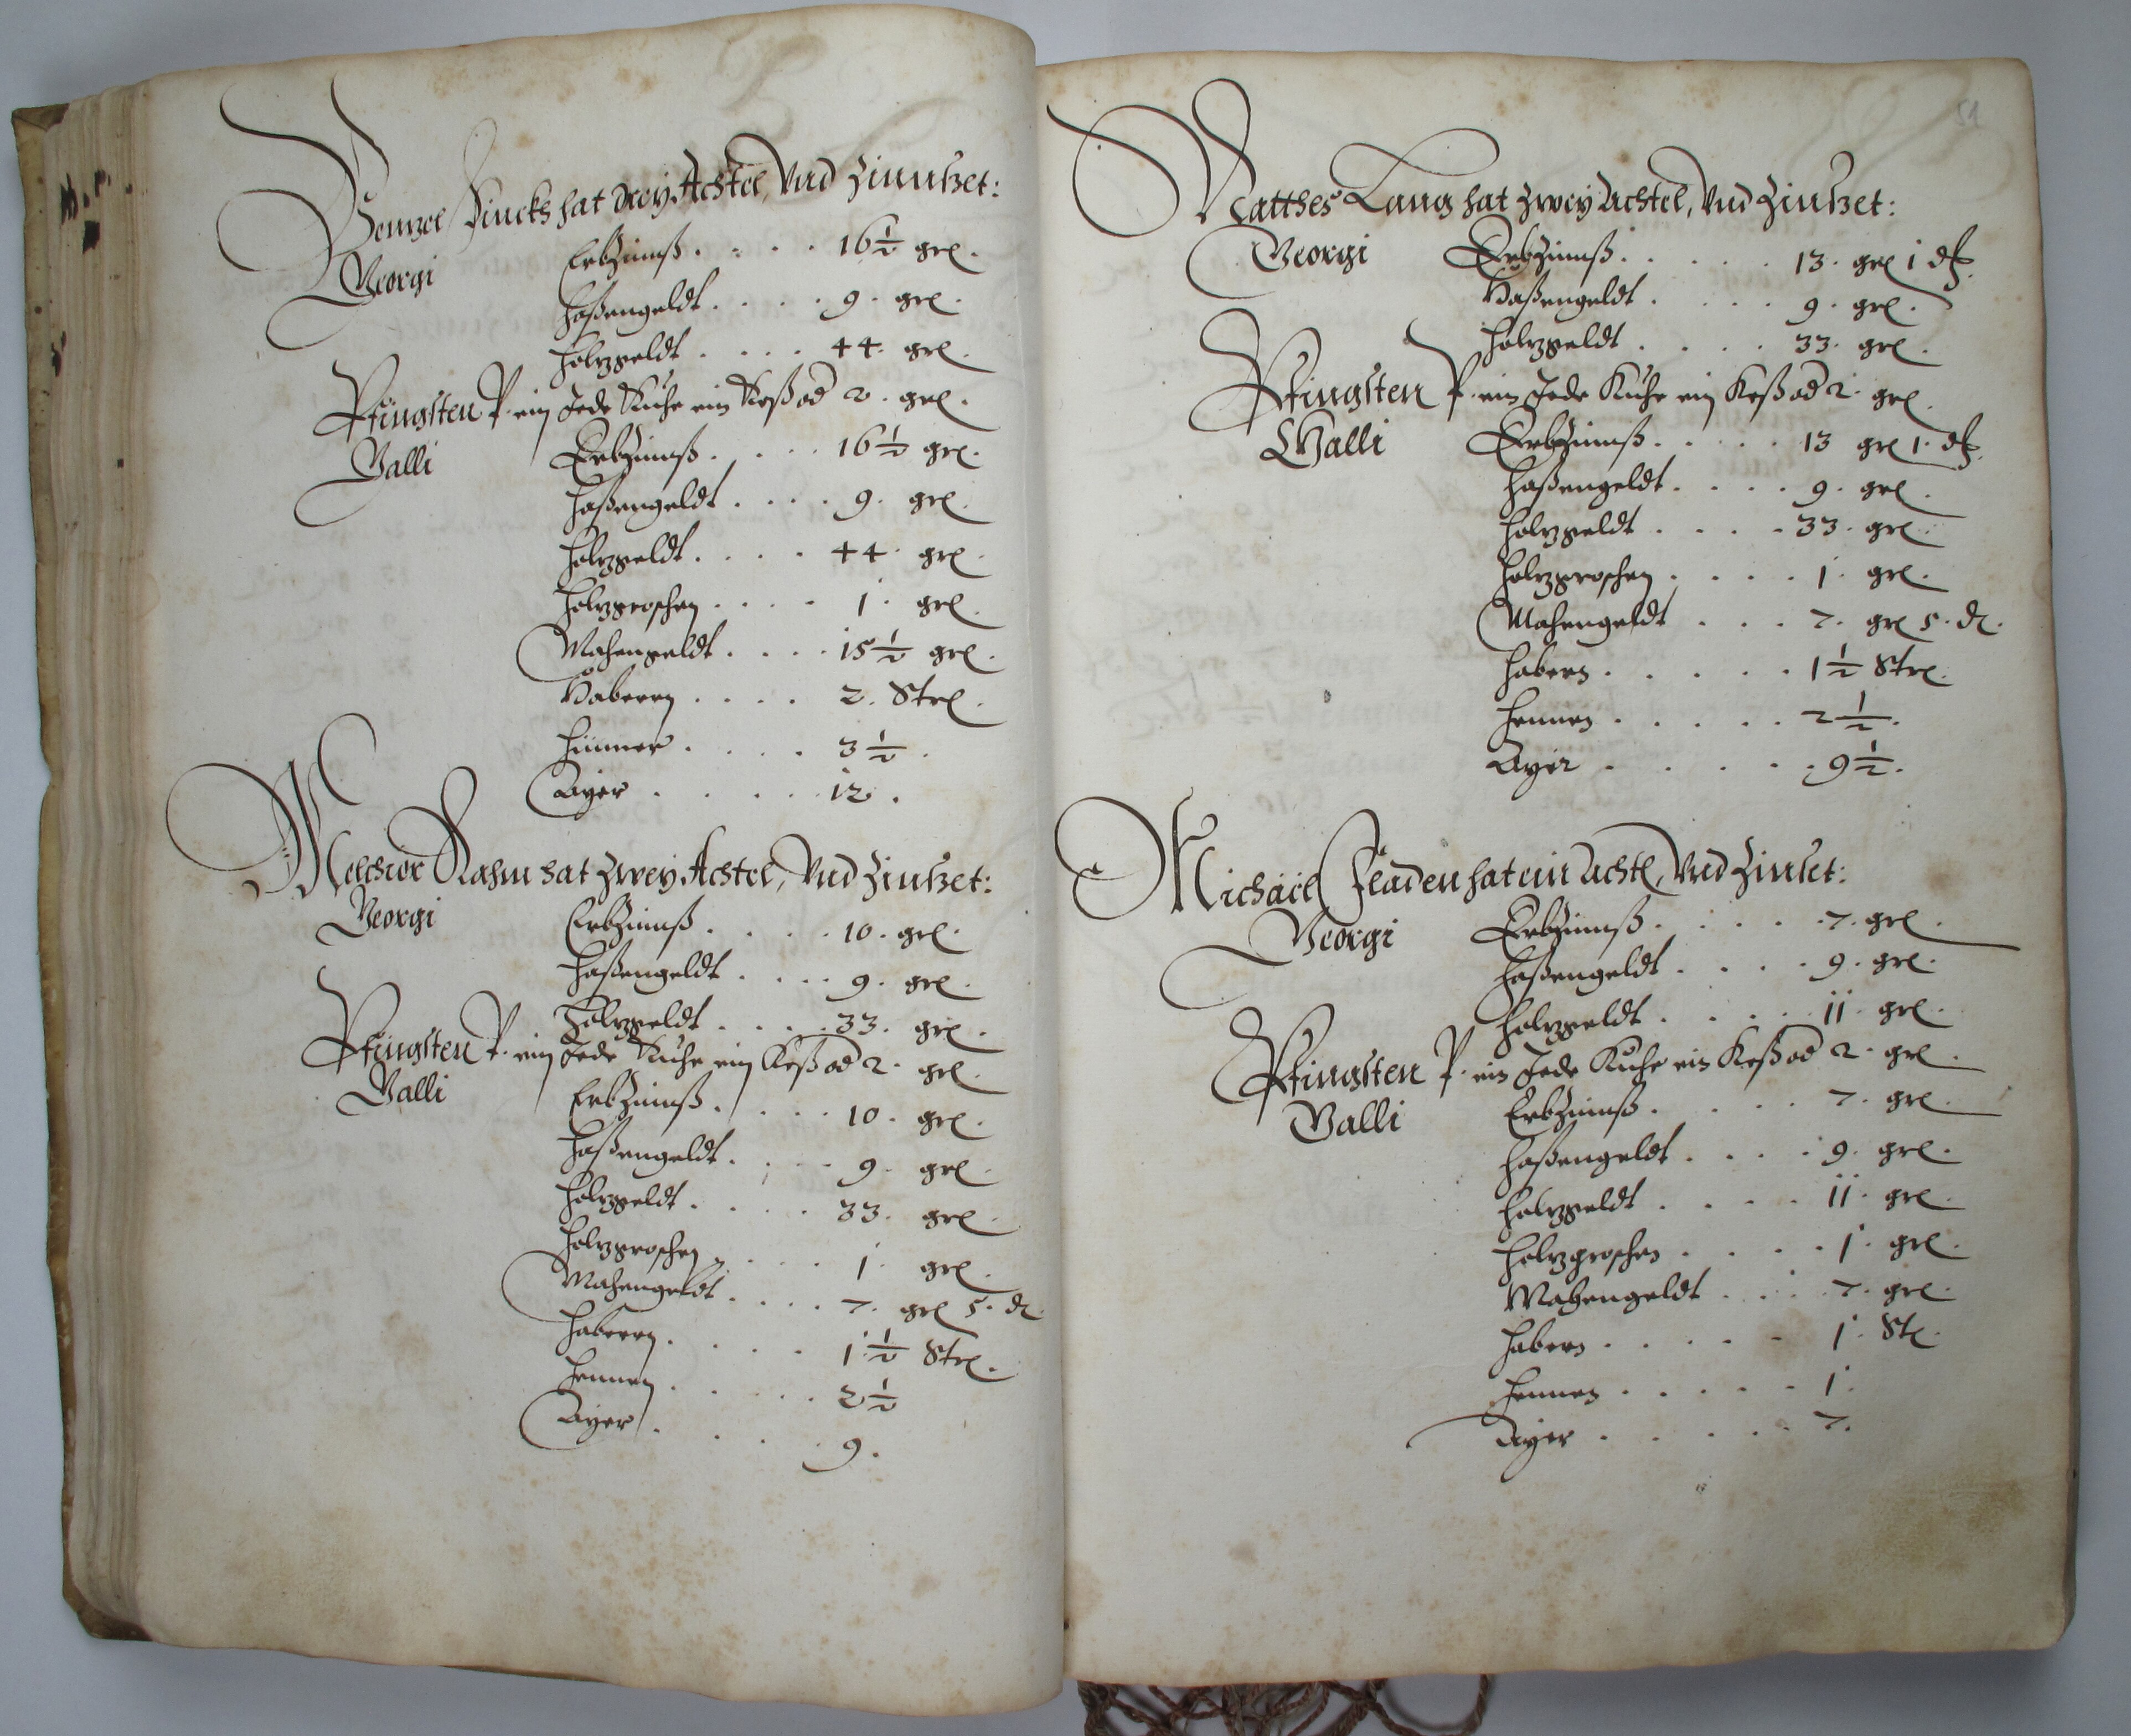 Wenzel Fincks hat drey Achtel, Vnd Zinnßet:
Georgi Erbzinnß . . . . 16 ½ grl.
Haßengeldt . . . . 9. grl.
Holzgeldt . . . . 44. grl.
Pfingsten V. ein Jede Kuhe ein Keß od 2. grl.
Galli Erbzinnß . . . . 16 ½ grl.
Haßengeldt . . . . 9. grl.
Holzgeldt . . . . 44. grl.
Holzgroschen . . . . 1. grl.
Mahengeldt . . . . 15 ½ grl.
Haberrn . . . . 2. Strl.
Hünner . . . . 3 ½.
Ayer . . . . 12.
Melchior Rahm hat zwey Achtel, Vnd Zinßet:
Georgi Erbzinnß . . . . 10. grl.
Haßengeldt . . . . 9. grl.
Holzgeldt . . . . 33. grl.
Pfingsten V. ein Jede Kuhe ein Keß od 2. grl.
Galli Erbzinnß . . . . 10. grl.
Haßengeldt . . . . 9. grl.
Holzgeldt . . . . 33. grl.
Holzgroschen . . . . 1. grl.
Mahengeldt . . . . 7. grl 5. d.
Haberrn . . . . 1 ½ Strl.
Hennen . . . . 2 ½
Ayer . . . . 9.
51
Matthes Lang hat zwey Achtel, Vnd Zinßet:
Georgi Erbzinnß . . . . 13. grl 1 d.
Haßengeldt . . . . 9. grl.
Holzgeldt . . . . 33. grl.
Pfingsten V. ein Jede Kuhe ein Keß od 2. grl.
Galli Erbzinnß . . . . 13 grl 1. d.
Haßengeldt . . . . 9. grl.
Holzgeldt . . . . 33. grl.
Holzgroschen . . . . 1. grl.
Mahengeldt . . . 7. grl 5. d.
Habern . . . . . 1 ½ Strl.
Hennen . . . . . 2 ½.
Ayer . . . . . 9 ½.
Michäel Fladen hat ein Achtl, Vnd Zinset:
Georgi Erbzinnß . . . . 7. grl.
Haßengeldt . . . . 9. grl.
Holzgeldt . . . . 11. grl.
Pfingsten V. ein Jede Kuhe ein Keß od 2. grl.
Galli Erbzinnß . . . . 7. grl.
Haßengeldt . . . . 9. grl.
Holzgeldt . . . . 11. grl.
Holzgroschen . . . . 1. grl.
Mahengeldt . . . 7. grl.
Habern . . . . . 1. Stl.
Hennen . . . . . 1.
Ayer . . . . . 7.